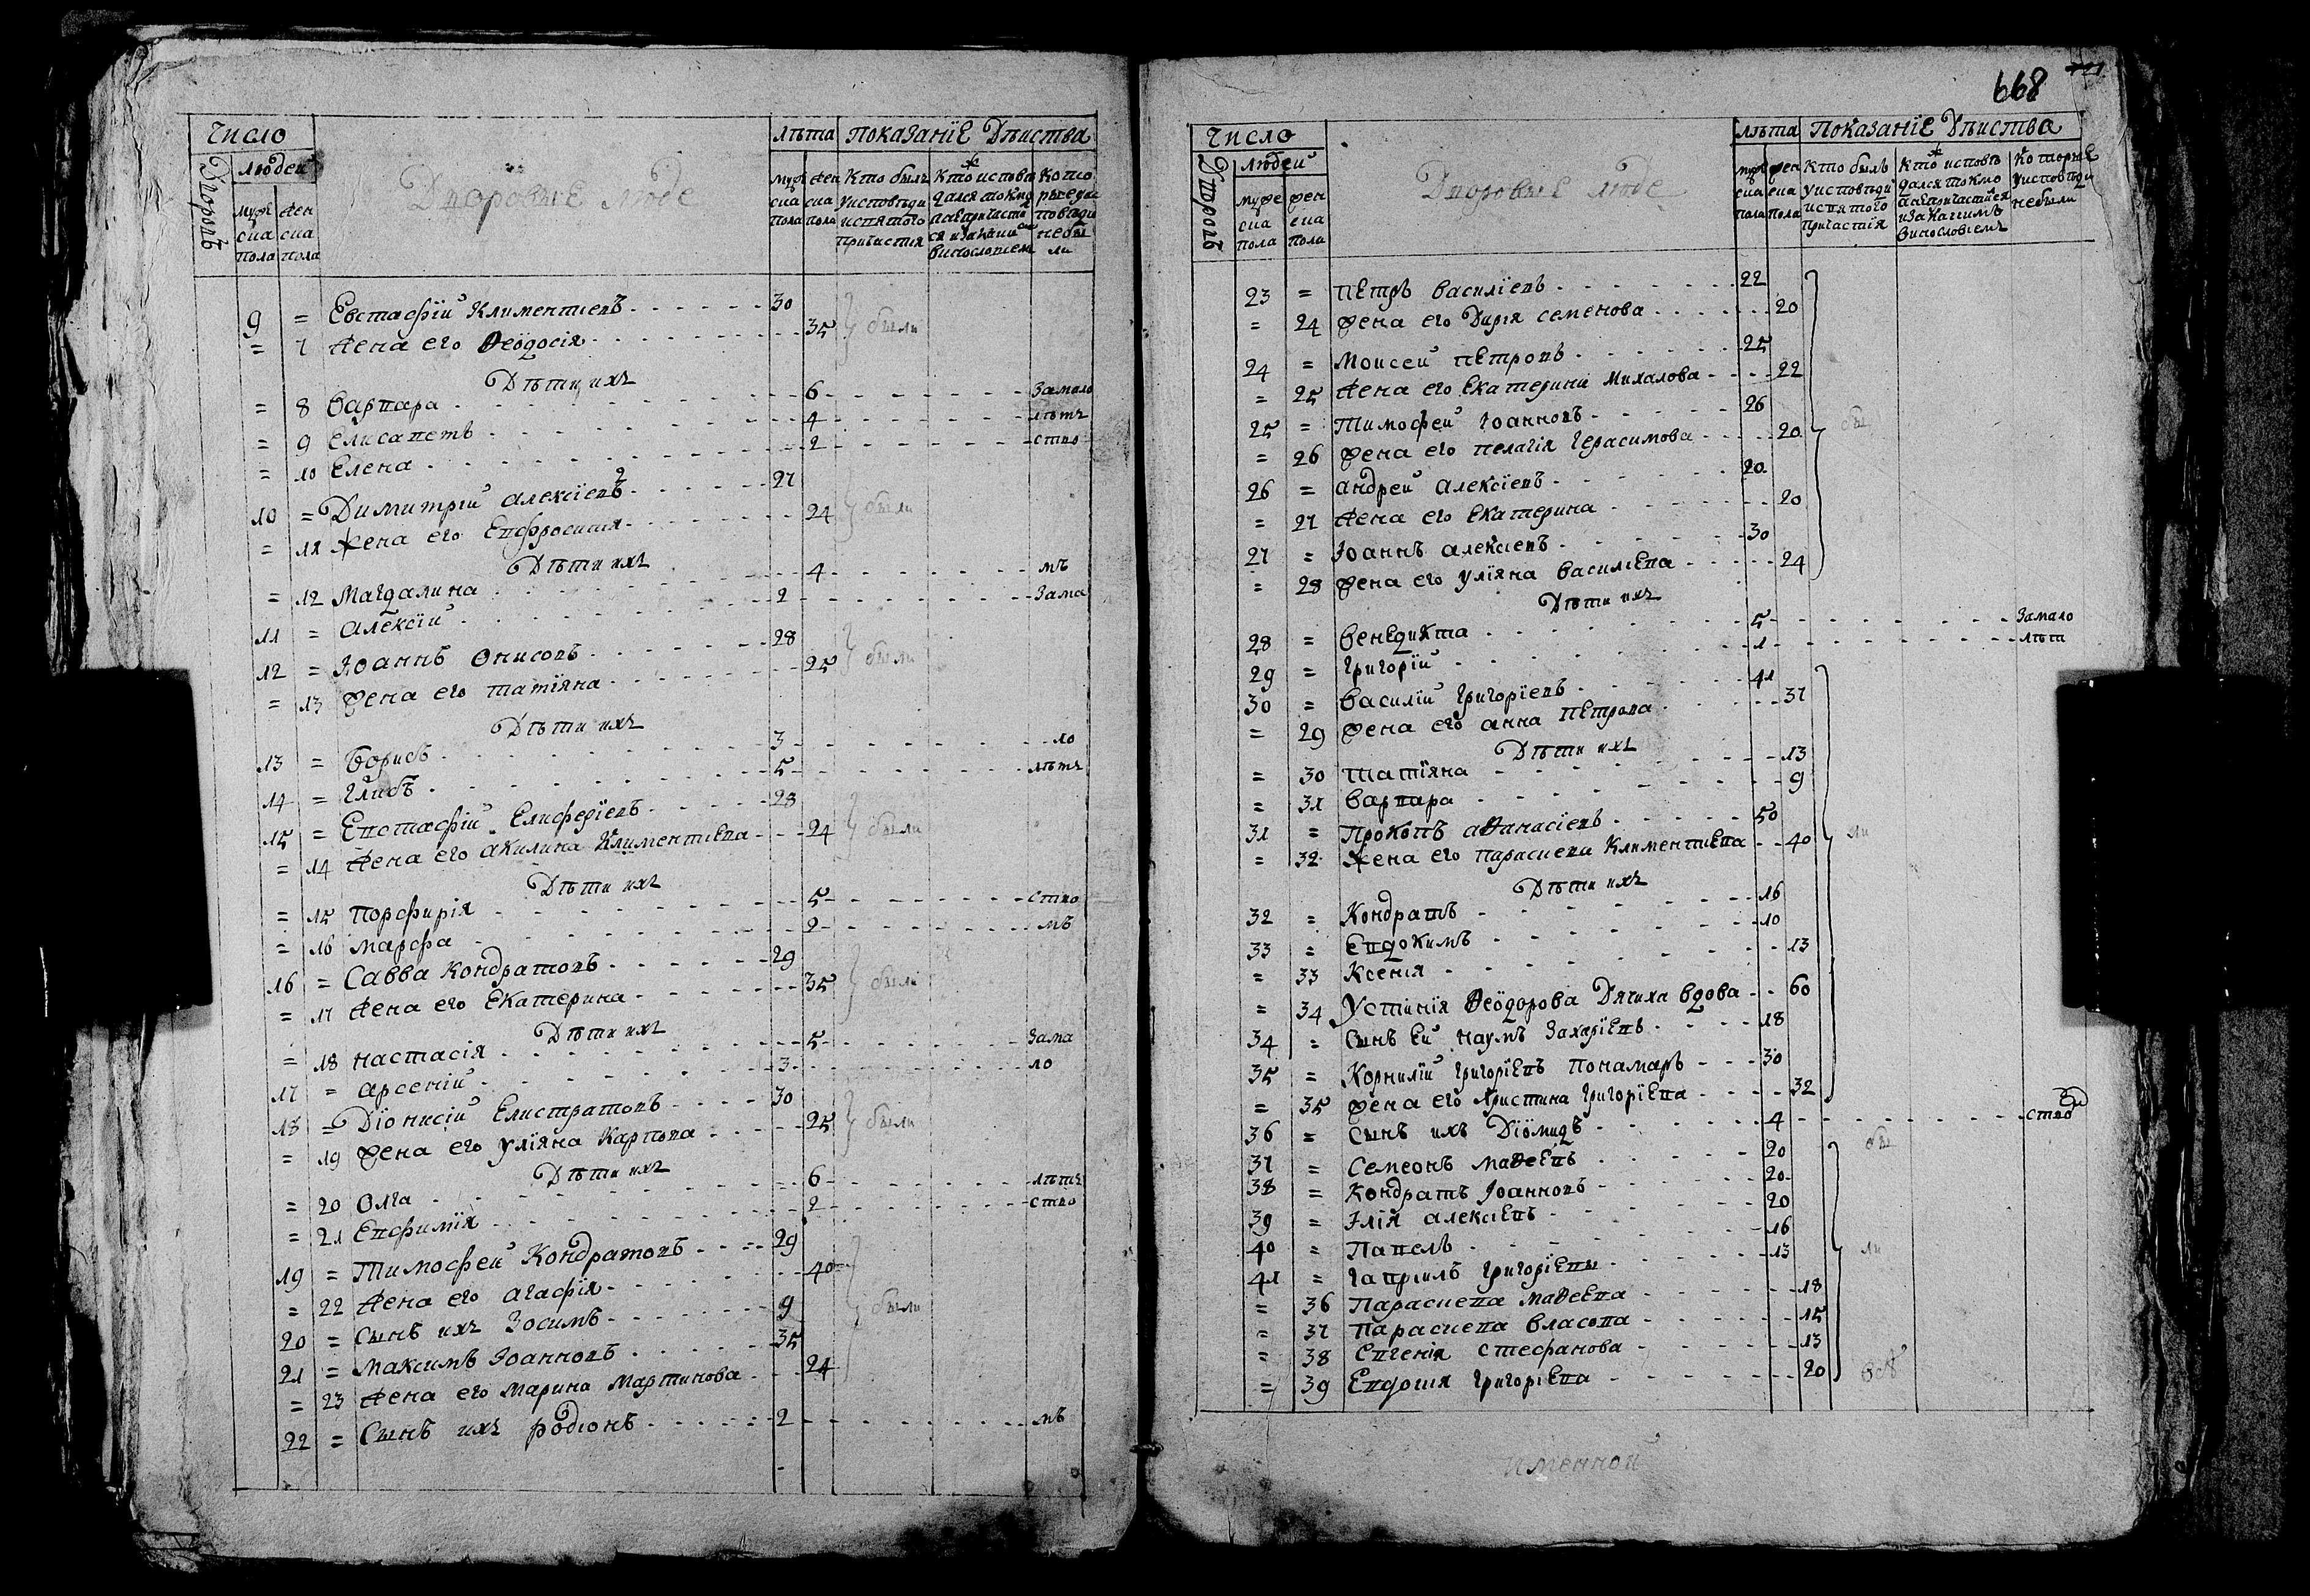 Число
Дворовъ
Людей
Муже
ска
пола
Жен
ска
пола
Дворовые люде
Лѣта
Муже
ска
пола
Жен
ска
пола
Показанїе Дѣиства
Кто былъ
у исповѣди
и святого
причастия
Кто исповѣ
дался токмо
а не причасти
ся и за каким
винословием
Кото
рые у ис
поведи
небы
ли
9 = Евстафїй Климентиевъ 30 были
= 7 Жена его Ѳеодосія 35
Дѣти ихъ
= 8 Варвара 6 Замало
= 9 Елисаветъ 4 лѣтъ
= 10 Елена 2 ство
10 = Димитрій Алексїевъ 27 были
= 11 Жена его Евфросиния 24
Дѣти ихъ
= 12 Магдалина 4 мъ
11 = Алексїй 2 Зама
12 = Іоаннъ Онисовъ 28 были
= 13 Жена его Татїяна 25
Дѣти ихъ
13 = Борисъ 3 ло
14 = Глибъ 5 лѣтъ
15 = Евстафїй Елиферїевъ 28 были
= 14 Жена его Акилина Климентиева 24
Дѣти ихъ
= 15 Порфирія 5 ство
= 16 Марфа 2 мъ
16 = Савва Кондратовъ 29 были
= 17 Жена его Екатерина 35
Дѣти ихъ
= 18 Настасія 5 Зама
17 = Арсений 3 ло
18 = Дїонисій Елистратовъ 30 были
= 19 Жена его Улїяна Карпова 25
Дѣти ихъ
= 20 Олга 6 лѣтъ
= 21 Евфимїя 2 ство
19 = Тимофей Кондратовъ 29
= 22 Жена его Агафїя 40
20 = Сынъ ихъ Зосимъ 9 были
21 = Максимъ Іоанновъ 35
= 23 Жена его Марина Мартинова 24
22 = Сынъ ихъ Родіонъ 2 мъ
668
Число
Дворовъ
Людей
Муже
ска
пола
Жен
ска
пола
Дворовые люде
Лѣта
Муже
ска
пола
Жен
ска
пола
Показанїе Дѣиства
Кто былъ
у исповѣди
и святого
причастїя
Кто исповѣ
дался токмо
а не причастися
и за какимъ
винословіемъ
Которые
у исповѣди
небыли
23 = Петръ Василїевъ 22
= 24 Жена его Дария Семенова 20
24 = Моисей Петровъ 25
= 25 Жена его Екатерина Михалова 22
25 = Тимофей Іоанновъ 26 бы
= 26 Жена его Пелагія Герасимова 20
26 = Андрей Алексїевъ 20
= 27 Жена его Екатерина 20
27 = Іоаннъ Алексїевъ 30
= 28 Жена его Улїяна Василиева 24
Дѣти ихъ
28 = Венедикта 5 Замало
29 = Григорїй 1 лѣт
30 = Василїй Григорїевъ 41
= 29 Жена его Анна Петрова 37
Дѣти ихъ
= 30 Татїяна 13
= 31 Варвара 9
31 = Прокопъ Аѳанасїевъ 50
= 32 Жена его Параскева Климентиева 40 ли
Дѣти ихъ
32 = Кондратъ 16
33 = Евдокимъ 10
= 33 Ксенія 13
= 34 Устинія Ѳеодорова Дячиха вдова 60
34 = Сынъ ей Наумъ Захарїевъ 18
35 = Корнилїй Григорїевъ Понамаръ 30
= 35 Жена его Христина Григорїева 32
36 = Сынъ ихъ Дїомидъ 4 ство
37 = Семеонъ Маѳеевъ 20 бы
38 = Кондратъ Іоанновъ 20
39 = Ілія Алексіевъ 20
40 = Павелъ 16
41 = Гавриилъ Григорїевы 13 ли
= 36 Параскева Маѳеева 18
= 37 Параскева Власова 15
= 38 Евгенія Стефанова 13
= 39 Евдокия Григорїева 20 всѣ
именной